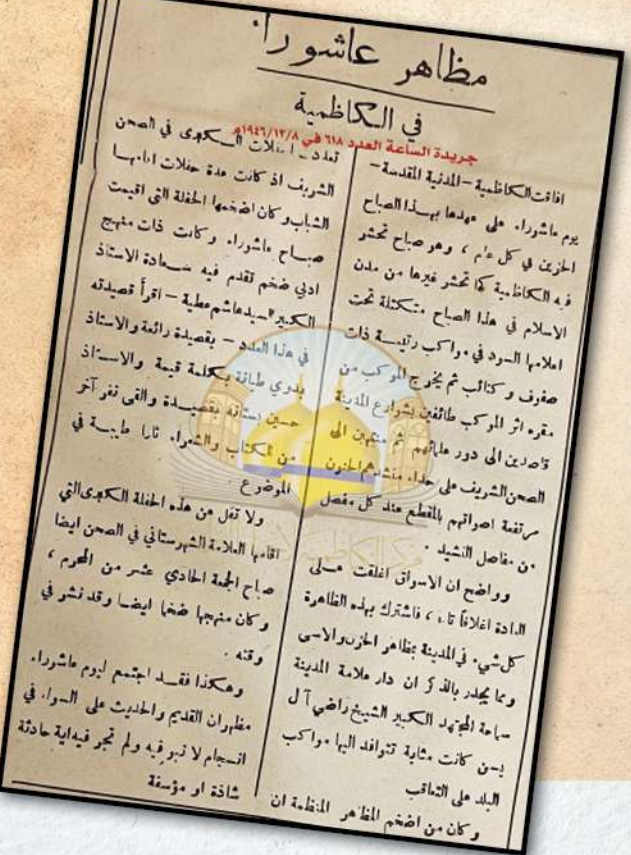 مظاهر عاشوراء
في الكاظمية
جريدة الساعة العدد ٦١٨ في ١٩٤٦/١٢/٨م
افاقت الكاظمية – المدنية المقدسة –
يوم عاشوراء على عهدها بهذا الصباح
الحزين في كل عام ، وهو صباح تحشر
فيه الكاظمية كما تحشر غيرها من مدن
الاسلام في هذا الصباح متكتلة تحت
اعلامها السود في مواكب رئيسة ذات
صفوف وكتائب ثم يخرج الموكب من
مقره اثر الموكب طائفين بشوارع المدينة
قاصدين الى دور علمائهم ثم منتهين الى
الصحن الشريف على حداء منشدهم الحنون
مرتفعة اصواتهم بالمقطع عند كل مفصل
من مفاصل النشيد .
وواضح ان الاسواق اغلقت على
العادة اغلاقاً تاماً ، فاشترك بهذه الظاهرة
كل شيء في المدينة بمظاهر الحزن والاسى
ومما يجدر بالذكر ان دار علامة المدينة
سماحة المجتهد الكبير الشيخ راضي آل
يسن كانت مثابة تتوافد اليها مواكب
البلد على التعاقب
وكان من اضخم المظاهر المنظمة ان
تعدد الحفلات الكبرى في الصحن
الشريف اذ كانت عدة حفلات اقامها
الشباب وكان اضخمها الحفلة التي اقيمت
صباح عاشوراء وكانت ذات منهج
ادبي ضخم تقدم فيه سعادة الاستاذ
الكبير السيد هاشم عطية – اقرأ قصيدته
في هذا العدد – بقصيدة رائعة والاستاذ
بدوي طبانة بكلمة قيمة والاستاذ
حسين بستانة بقصيدة والقى نفر آخر
من الكتاب والشعراء آثارا طيبة في
الموضوع
ولا تقل عن هذه الحفلة الكبرى التي
اقامها العلامة الشهرستاني في الصحن ايضا
صباح الجمعة الحادي عشر من المحرم ،
وكان منهجها ضخما ايضا وقد نشر في
وقته .
وهكذا فقد اجتمع ليوم عاشوراء
مظهران القديم والحديث على السواء في
انسجام لا نبو فيه ولم تجر فيه اية حادثة
شاذة او مؤسفة